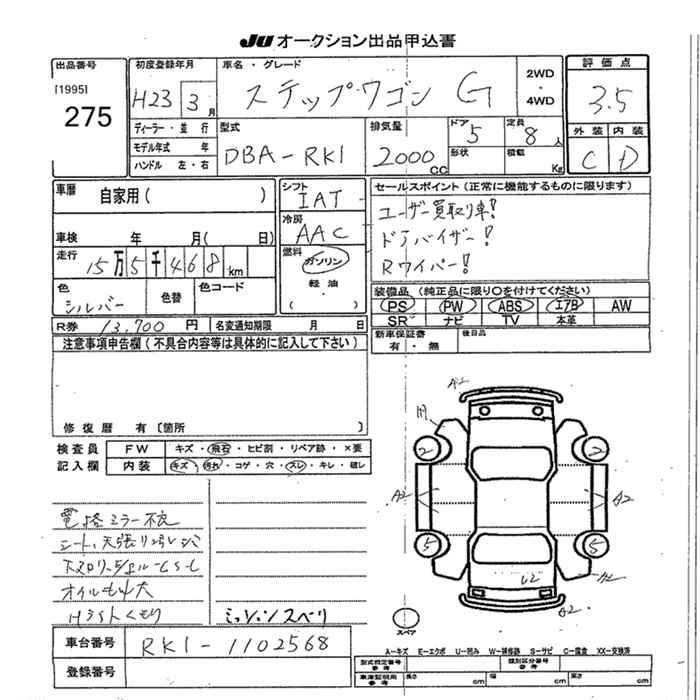 JU オークション出品申込書
出品番号
[1995]
275
初度登録年月
H23 3 月
車名・グレード
ステップワゴン G
2WD
・
4WD
評価点
3.5
ディーラー・並行
モデル年式 年
ハンドル 左・右
型式
DBA-RK1
排気量
2000 cc
ドア 5
形状
定員 8 人
積載 Kg
外装 内装
C D
車暦 自家用( )
車検 年 月( 日)
走行 15万5千468 km
色 シルバー
色替
色コード
シフト
IAT
冷房
AAC
燃料
ガソリン
・
軽油
・
( )
セールスポイント(正常に機能するものに限ります)
ユーザー買取り車!
ドアバイザー!
Rワイパー!
装備品(純正品に限り○を付けてください)
PS PW ABS エアB AW
SR ナビ TV 本革
新車保証書
有・無
後日品
R券 13,700 円
名変通知期限 月 日
注意事項申告欄(不具合内容等は具体的に記入して下さい)
修復暦 有〔箇所 〕
検査員 FW キズ・飛石・ヒビ割・リペア跡・×要
記入欄 内装 キズ・汚れ・コゲ・穴・スレ・キレ・破レ
電格ミラー不良
オイルもれ大
Hライトくもり
ミッションスベリ
車台番号 RK1-1102568
登録番号
A2
2
2
A2
A2
5
5
U2
A2
スペア
A-キズ E-エクボ U-凹み W-補修跡 S-サビ C-腐食 XX-交換済
型式指定番号
参考
類別区分番号
参考
車庫証明用
参考
長さ cm
幅 cm
高さ cm